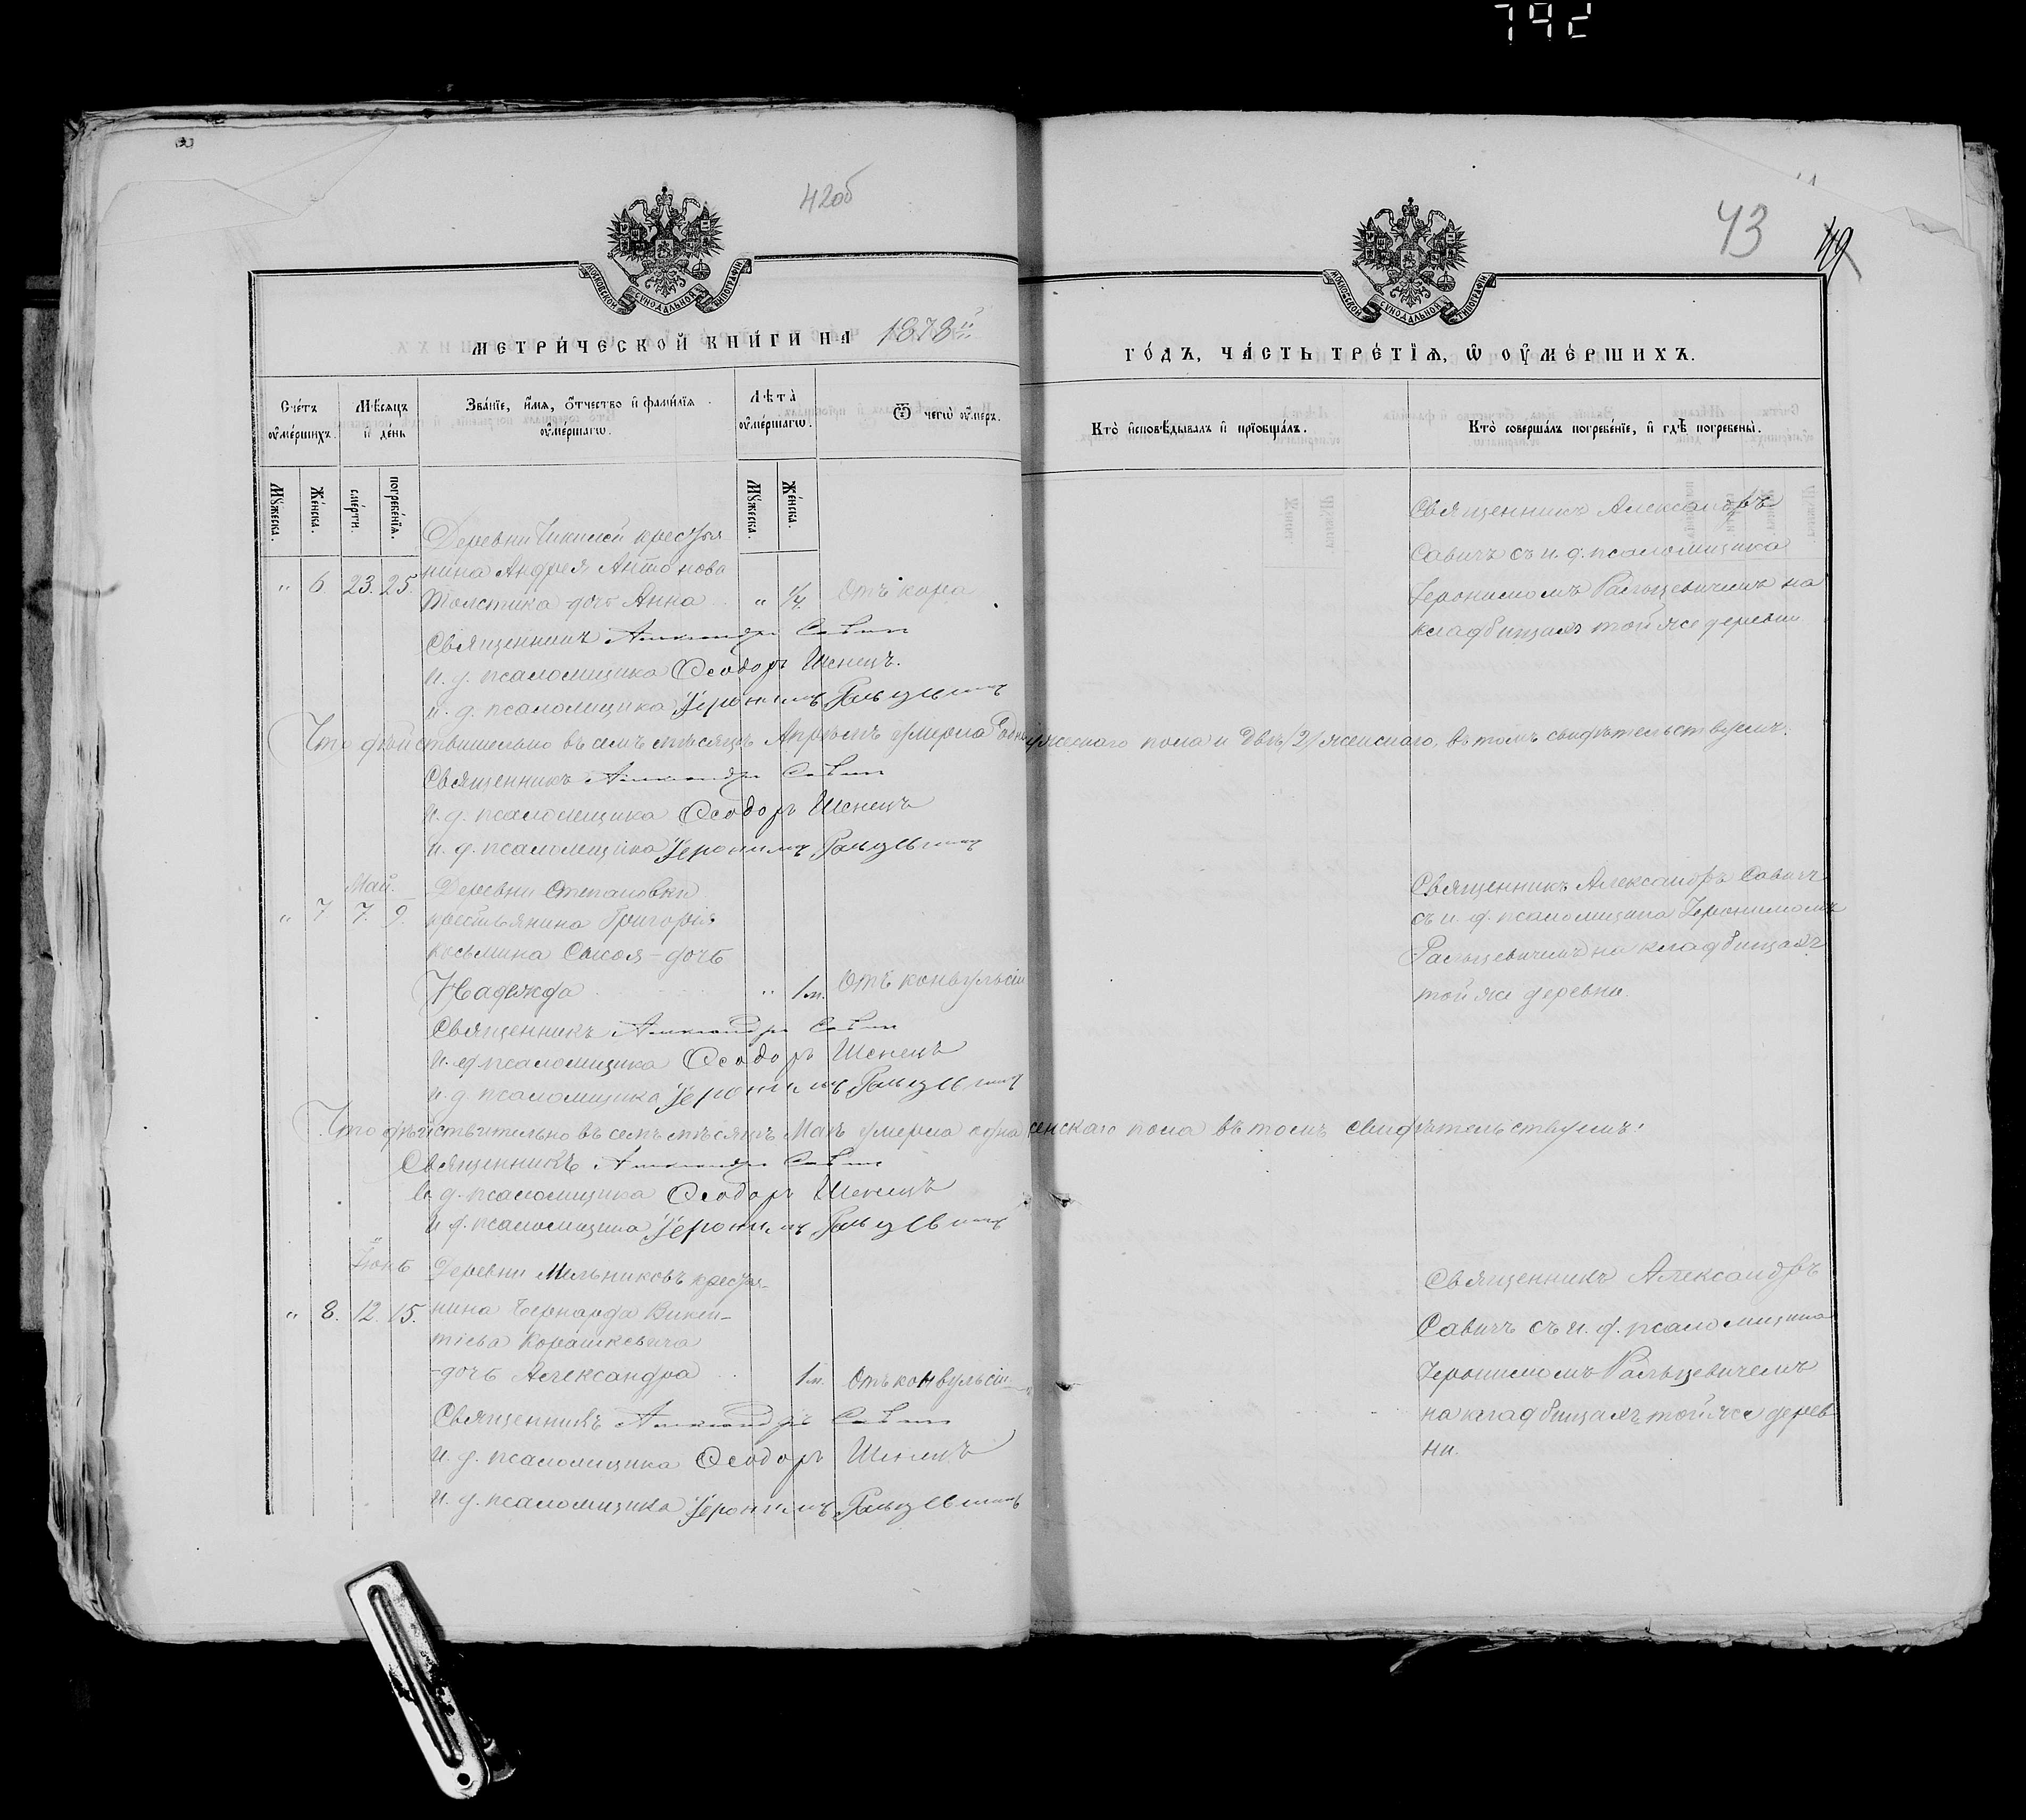 792
42об
43
49
МОСКОВСКОЙ СѴНОДАЛЬНОЙ ТИПОГРАФІИ
МОСКОВСКОЙ СѴНОДАЛЬНОЙ ТИПОГРАФІИ
МЕТРИ́ЧЕСКОЙ КНИ́ГИ НА 1878й
ГО́ДЪ, ЧА́СТЬ ТРЕ́ТІѦ, Ѡ ОУ҆МЕ́РШИХЪ.
Сче́тъ оу҆ме́ршихъ.
Мѣ́сяцъ и҆ де́нь
Зва́нїе, и҆́мѧ, ѻ҆́тчество и҆ фами́лїѧ оу҆ме́ршагѡ.
Лѣ́та оу҆ме́ршагѡ.
Ѿ чегѡ̀ оу҆́меръ.
Кто̀ и҆сповѣ́дывалъ и҆ прїѡбща́лъ.
Кто̀ соверша́лъ погребе́нїе, и҆ гдѣ̀ погребены̀.
Мꙋ́жеска. Же́нска. сме́рти. погребе́нїѧ. Мꙋ́жеска. Же́нска.
Деревни крестья
нина Андрея Антонова
" 6. 23. 25. Толстика дочь Анна " 1/4. Отъ кора
Священникъ Александръ
Савичъ съ и. д. псаломщика
Іеронимомъ Ральцевичемъ на
кладбищахъ той же деревни
Священникъ Александръ Савичъ
и. д. псаломщика Ѳеодоръ Шенецъ.
и. д. псаломщика Іеронимъ Ральцевичъ
Что дѣйствительно въ семъ мѣсяцѣ Апрѣлѣ умерло мужескаго пола и двѣ /2/ женскаго, въ томъ свидѣтельствуемъ:
Священникъ Александръ Савичъ
и. д. псаломщика Ѳеодоръ Шенецъ
и. д. псаломщика Іеронимъ Ральцевичъ
Май. Деревни Степановки
" 7 7. 9. крестьянина Григорія
Косьмина Сысоя - дочь
Надежда " 1м. Отъ конвульсіи
Священникъ Александръ Савичъ
съ и. д. псаломщика Іеронимомъ
Ральцевичемъ на кладбищахъ
той же деревни.
Священникъ Александръ Савичъ
и. д. псаломщика Ѳеодоръ Шенецъ
и. д. псаломщика Іеронимъ Ральцевичъ
Что дѣйствительно въ семъ мѣсяцѣ Маѣ умерла одна женскаго пола въ томъ свидѣтельствуемъ:
Священникъ Александръ Савичъ
и. д. псаломщика Ѳеодоръ Шенецъ
и. д. псаломщика Іеронимъ Ральцевичъ
Іюнь Деревни Мельниковъ крестья-
" 8. 12. 15. нина Бернарда Викен-
тіева Корашкевича
-дочь Александра 1м. Отъ конвульсіи
Священникъ Александръ
Савичъ съ и. д. псаломщика
Іеронимомъ Ральцевичемъ
на кладбищахъ той же дерев
ни.
Священникъ Александръ Савичъ
и. д. псаломщика Ѳеодоръ Шенецъ
и. д. псаломщика Іеронимъ Ральцевичъ